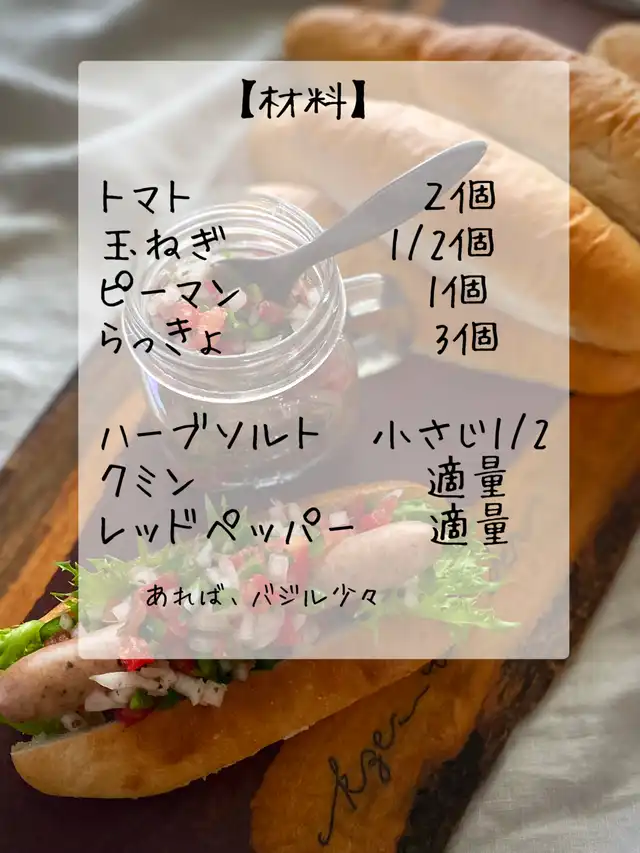 【材料】
トマト 2個
玉ねぎ 1/2個
ピーマン 1個
らっきょ 3個
ハーブソルト 小さじ1/2
クミン 適量
レッドペッパー 適量
あれば、バジル少々